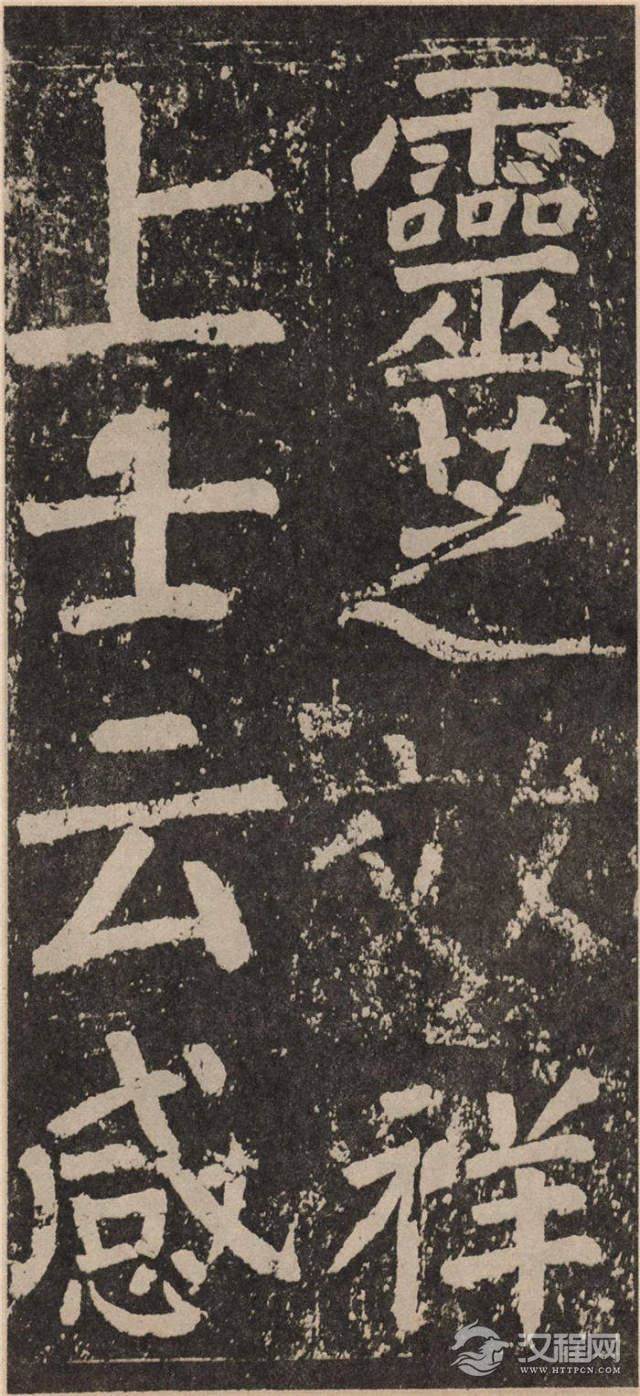 靈芝效祥
上士云感
汉程网
WWW.HTTPCN.COM